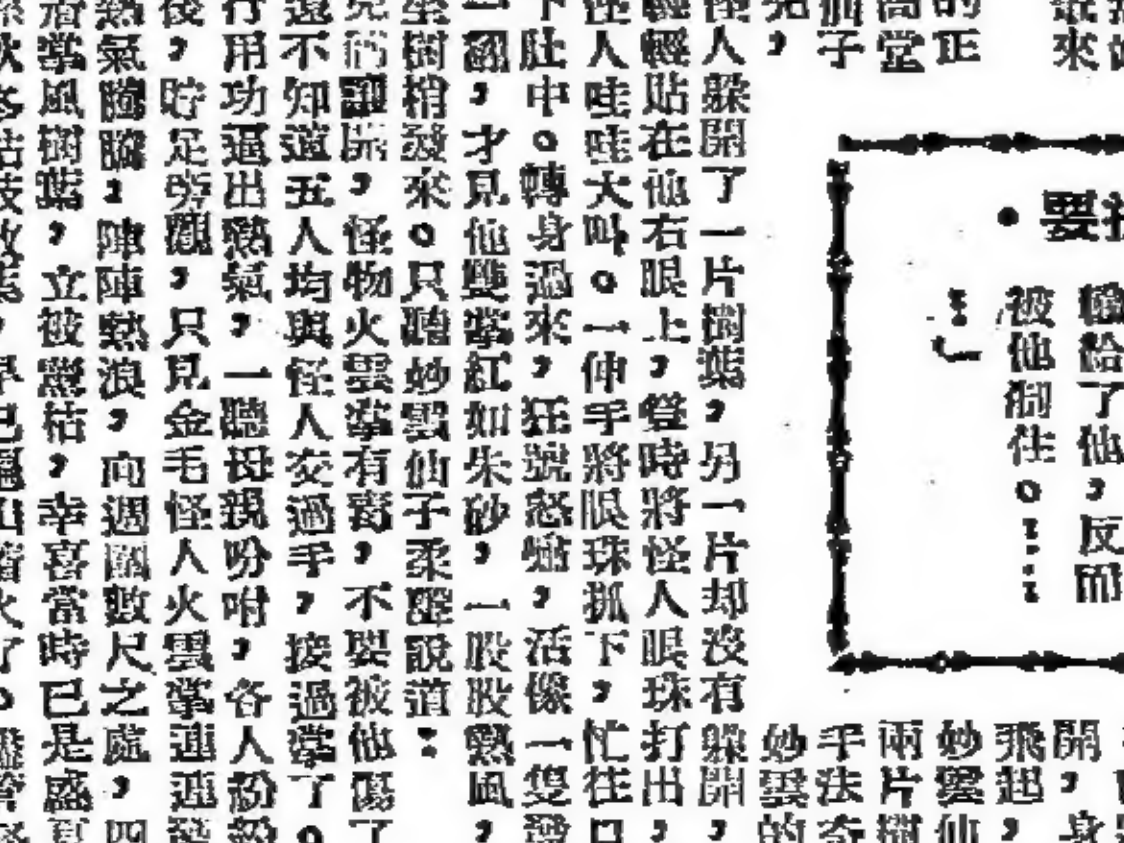 來
的正
高堂
仙子
，
要
給了他，反而
被他制住。……
…」
開，身
飛起，
妙雲仙
兩片樹
手法奇
妙雲的
怪人躲開了一片樹葉，另一片却沒有躲開，
輕輕貼在他右眼上，登時將怪人眼珠打出，
怪人哇哇大叫。一伸手將眼珠抓下，忙往口
下肚中。轉身過來，狂號怒嘯，活像一隻
一翻，才見他雙掌紅如朱砂，一股股熱風，
坐樹梢發來。只聽妙雲仙子柔聲說道：
兒們讓開，怪物火雲掌有毒，不要被他傷了
還不知道五人均與怪人交過手，接過掌了。
行用功逼出熱氣，一聽母親吩咐，各人紛紛
後，貯足旁觀，只見金毛怪人火雲掌連連發
熱氣騰騰，陣陣熱浪，向週圍數尺之處，四
掌風樹葉，立被薰枯，幸喜當時已是盛夏